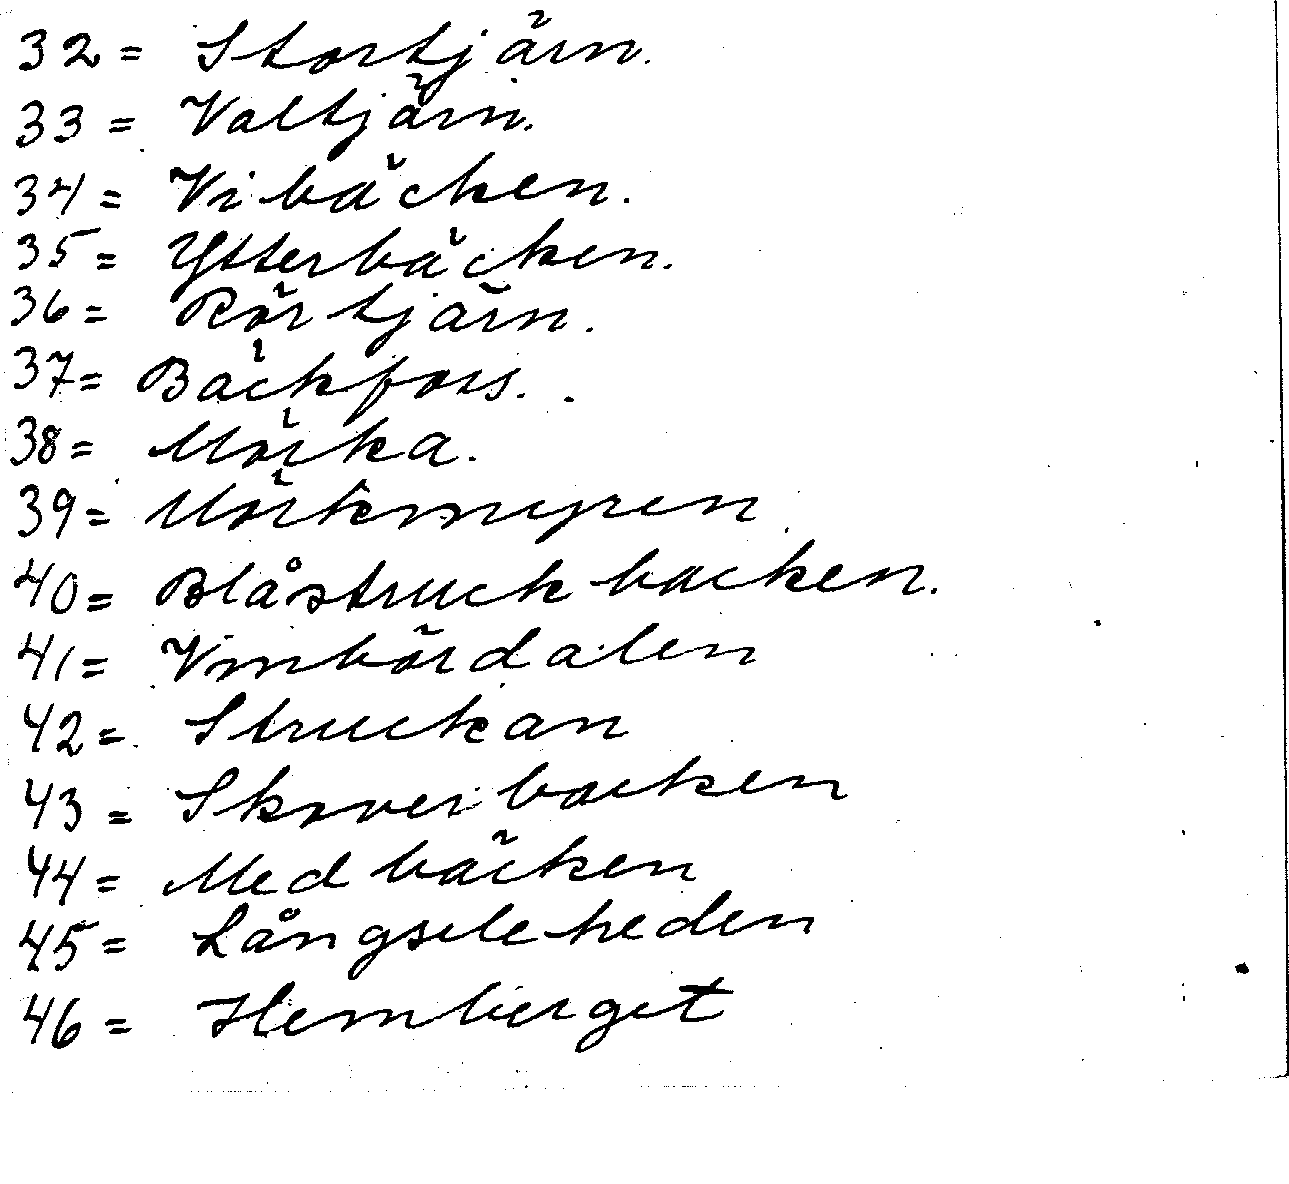 32 = Stortjärn.
33 = Valtjärn.
34 = Vibäcken.
35 = Ytterbäcken.
36 = Rörtjärn.
37 = Bäckfors.
38 = Mörka.
39 = Mörkmyren
40 = Blåstruckbacken.
41 = Vmbördalen
42 = Struckan
43 =
44 = Medbäcken
45 = Långseleheden
46 = Hemberget